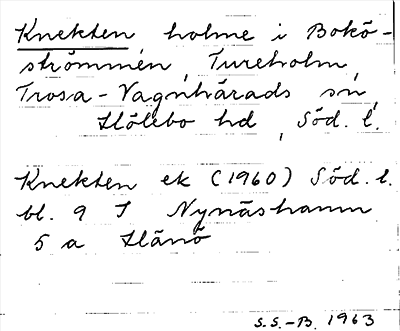 Knekten holme i Bokö-
strömmen, Tureholm,
Trosa-Vagnhärads sn,
Hölebo hd, Söd. l.
Knekten ek (1960) Söd. l.
bl. 9 I Nynäshamn
5 a Hånö
S.S.-B. 1963